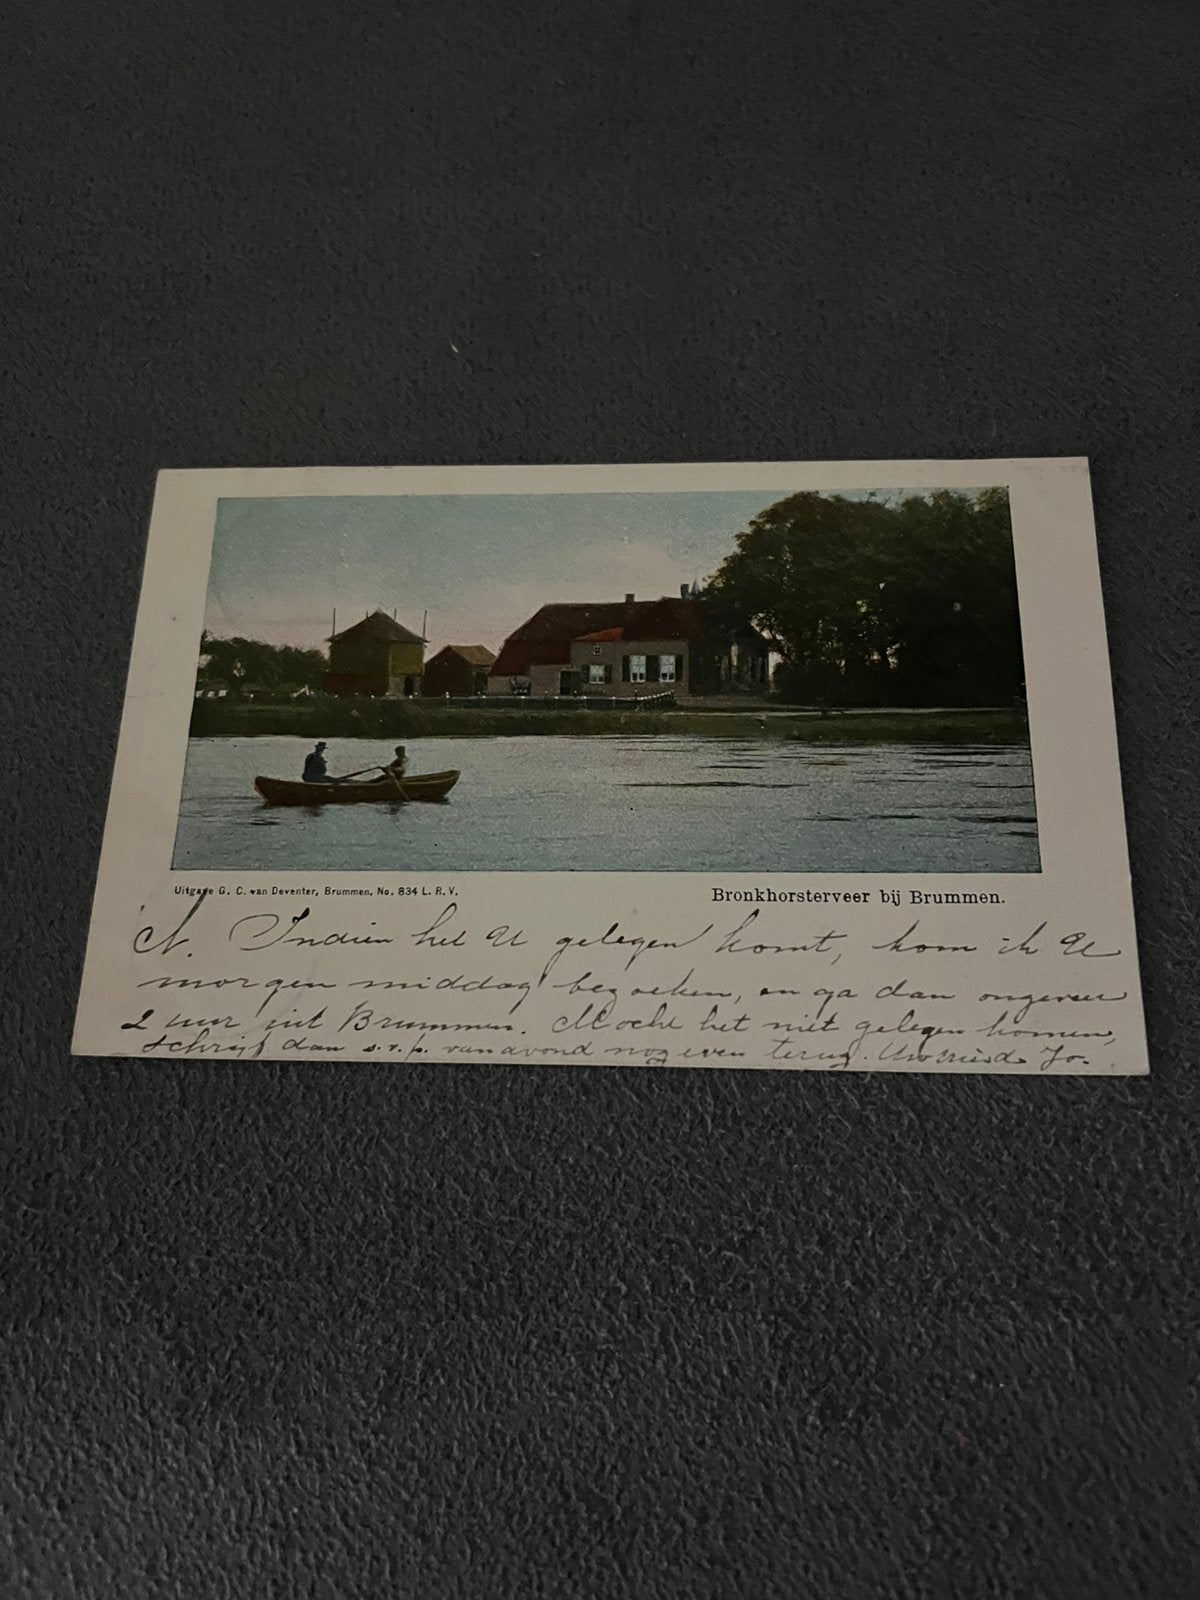 Uitgave G. C. van Deventer, Brummen. No. 834 L. R. V.
Bronkhorsterveer bij Brummen.
N. Indien het U gelegen komt, kom ik U
morgen middag bezoeken, en ga dan ongeveer
2 uur uit Brummen. Mocht het niet gelegen komen,
schrijf dan s.v.p. vanavond nog even terug. Uw Jo.